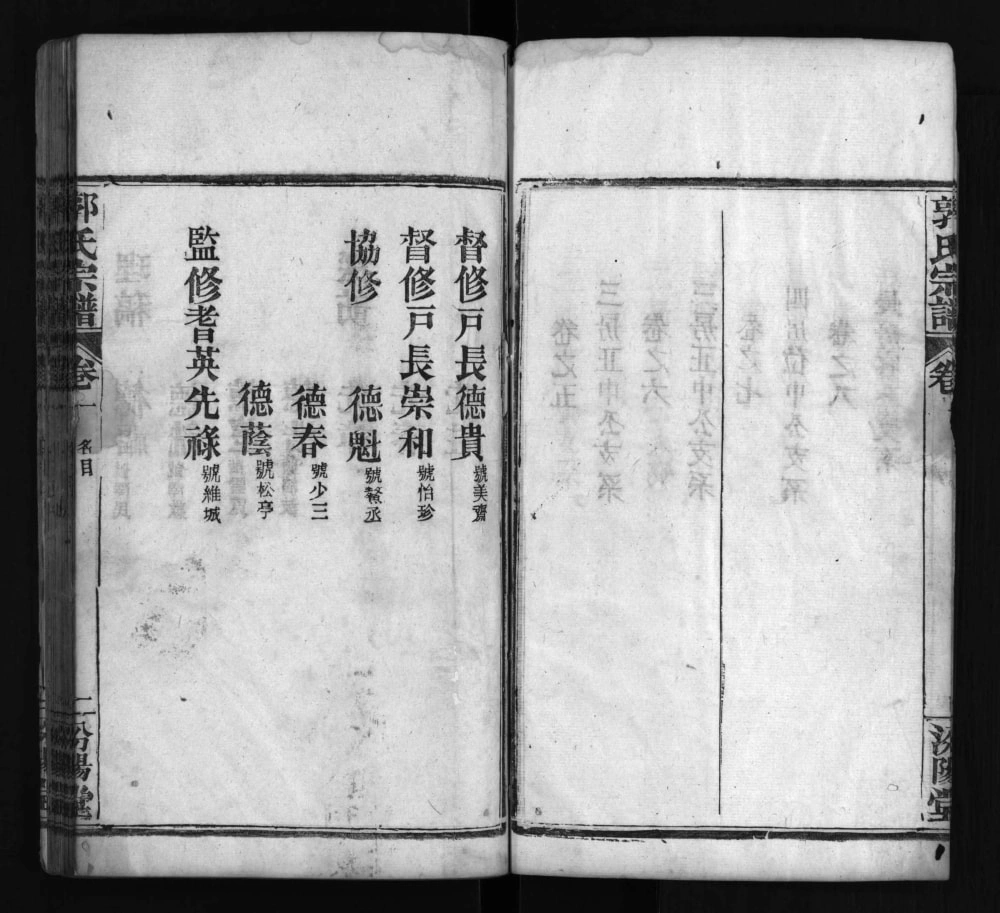 郭氏宗譜
卷
汾陽堂
督修戸長德貴號美齋
督修戸長崇和號怡珍
協修 德魁號鰲丞
德春號少三
德蔭號松亭
監修耆英先祿號維城
郭氏宗譜
卷一
名目
二
汾陽堂